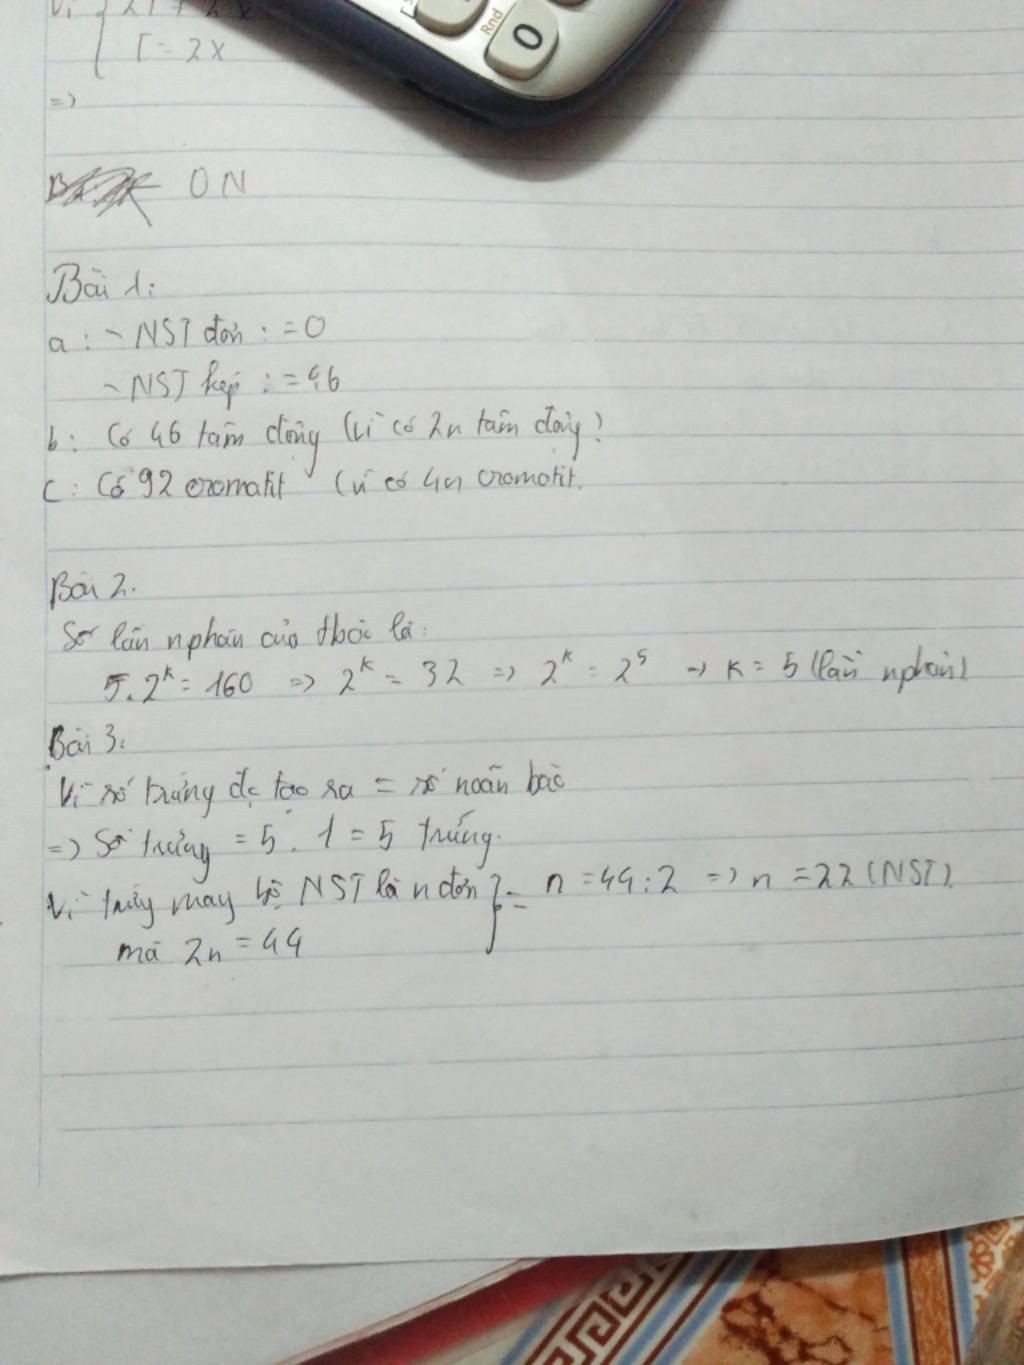 Γ = 2x
=>
ON
Rnd
0
Bài 1:
a : - NST đơn : = 0
- NST kép : = 46
b : Có 46 tâm động (vì có 2n tâm động)
c : Có 92 cromatit (vì có 4n cromatit.
Bài 2.
Số lần nphân của tbào là:
5.2^k = 160 => 2^k = 32 => 2^k = 2^5 -> k = 5 (lần nphân)
Bài 3:
Vì số trứng đc tạo ra = số noãn bào
=> Số trứng = 5 . 1 = 5 trứng.
Vì trứng mang bộ NST là n đơn } = n = 44 : 2 => n = 22 (NST).
mà 2n = 44